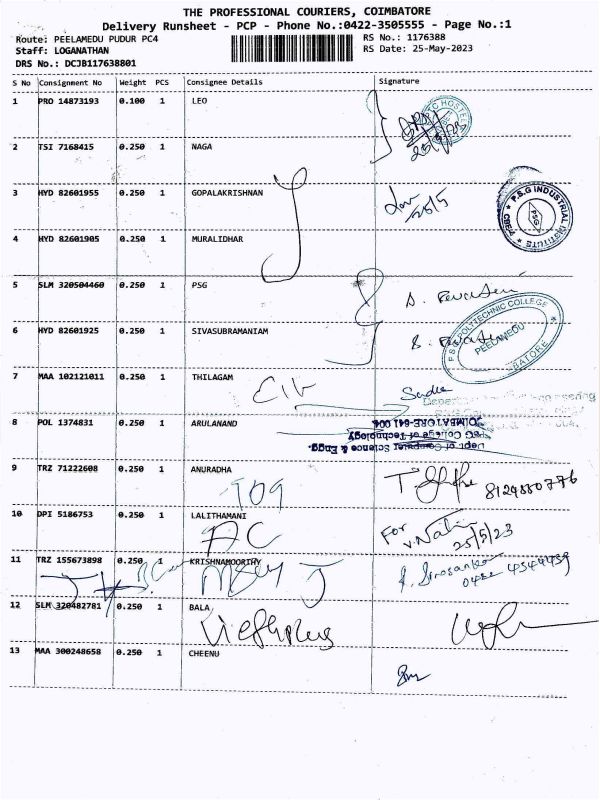 THE PROFESSIONAL COURIERS, COIMBATORE
Delivery Runsheet - PCP - Phone No.:0422-3505555 - Page No.:1
Route: PEELAMEDU PUDUR PC4 RS No.: 1176388
Staff: LOGANATHAN RS Date: 25-May-2023
DRS No.: DCJB117638801
S No Consignment No Weight PCS Consignee Details Signature
1 PRO 14873193 0.100 1 LEO
2 TSI 7168415 0.250 1 NAGA
3 HYD 82601955 0.250 1 GOPALAKRISHNAN
25/5
P.S.G INDUSTRIAL INSTITUTE
PSG
4 HYD 82601905 0.250 1 MURALIDHAR
5 SLM 320504460 0.250 1 PSG
6 HYD 82601925 0.250 1 SIVASUBRAMANIAM
P.S.G POLYTECHNIC COLLEGE
PEELAMEDU
7 MAA 102121011 0.250 1 THILAGAM
8 POL 1374831 0.250 1 ARULANAND
Dept of Computer Science & Engg.
PSG College of Technology
COIMBATORE-641 004.
9 TRZ 71222608 0.250 1 ANURADHA
8124880776
10 DPI 5186753 0.250 1 LALITHAMANI
AC
For
25/5/23
11 TRZ 155673898 0.250 1 KRISHNAMOORTHY
12 SLM 320482781 0.250 1 BALA
13 MAA 300248658 0.250 1 CHEENU